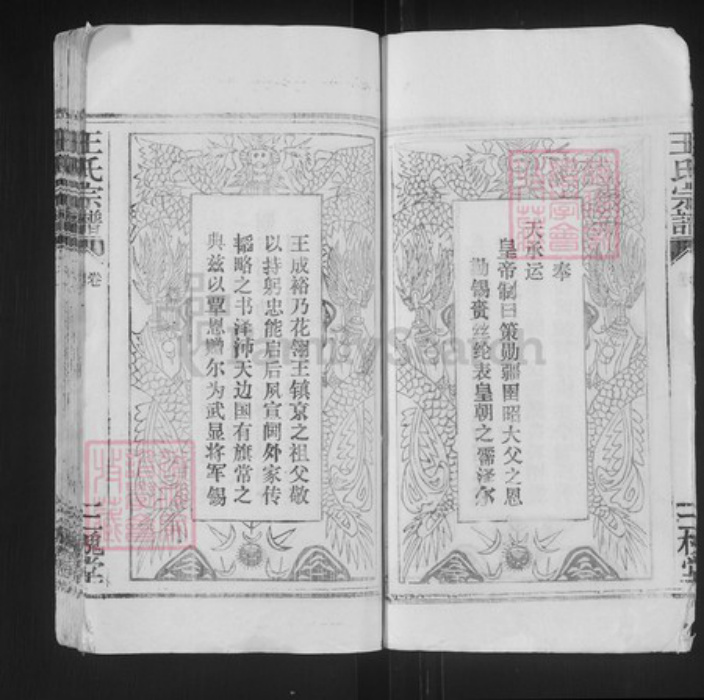 王氏宗譜
奉
天承运
皇帝制曰策勋疆圉昭大父之恩
勤锡赉丝纶表皇朝之霈泽尔
王成裕乃花翎王镇京之祖父敬
以持躬忠能启后夙宣阃外家传
韬略之书泽沛天边国有旗常之
典兹以覃恩赠尔为武显将军锡
王氏宗譜
卷
三槐堂
FamilySearch